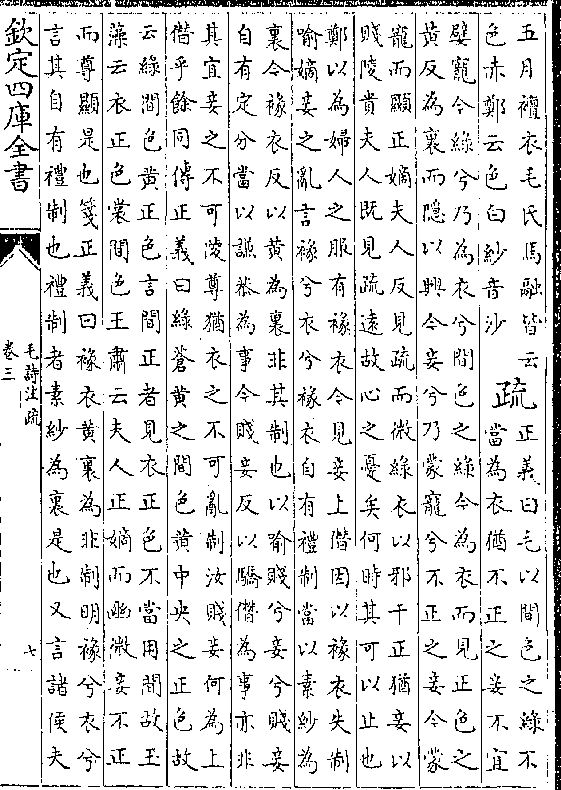 五月襢衣毛氏馬融皆云
色赤鄭云色白紗音沙
疏
正義曰毛以間色之緑不
當為衣猶不正之妾不宜
嬖寵今緑兮乃為衣兮間色之緑今為衣而見正色之
黄反為裏而隱以興今妾兮乃蒙寵兮不正之妾今蒙
寵而顯正嫡夫人反見疏而微緑衣以邪干正猶妾以
賤陵貴夫人既見疏遠故心之憂矣何時其可以止也
鄭以為婦人之服有褖衣今見妾上僭因以褖衣失制
喻嫡妾之亂言褖兮衣兮褖衣自有禮制當以素紗為
裏今褖衣反以黄為裏非其制也以喻賤兮妾兮賤妾
自有定分當以謙恭為事今賤妾反以驕僭為事亦非
其宜妾之不可陵尊猶衣之不可亂制汝賤妾何為上
僭乎餘同傳正義曰緑蒼黄之間色黄中央之正色故
云緑間色黄正色言間正者見衣正色不當用間故玉
藻云衣正色裳間色王肅云夫人正嫡而幽微妾不正
而尊顯是也箋正義曰褖衣黄裏為非制明褖兮衣兮
言其自有禮制也禮制者素紗為裏是也又言諸侯夫
欽定四庫全書
毛詩注疏
卷三
七